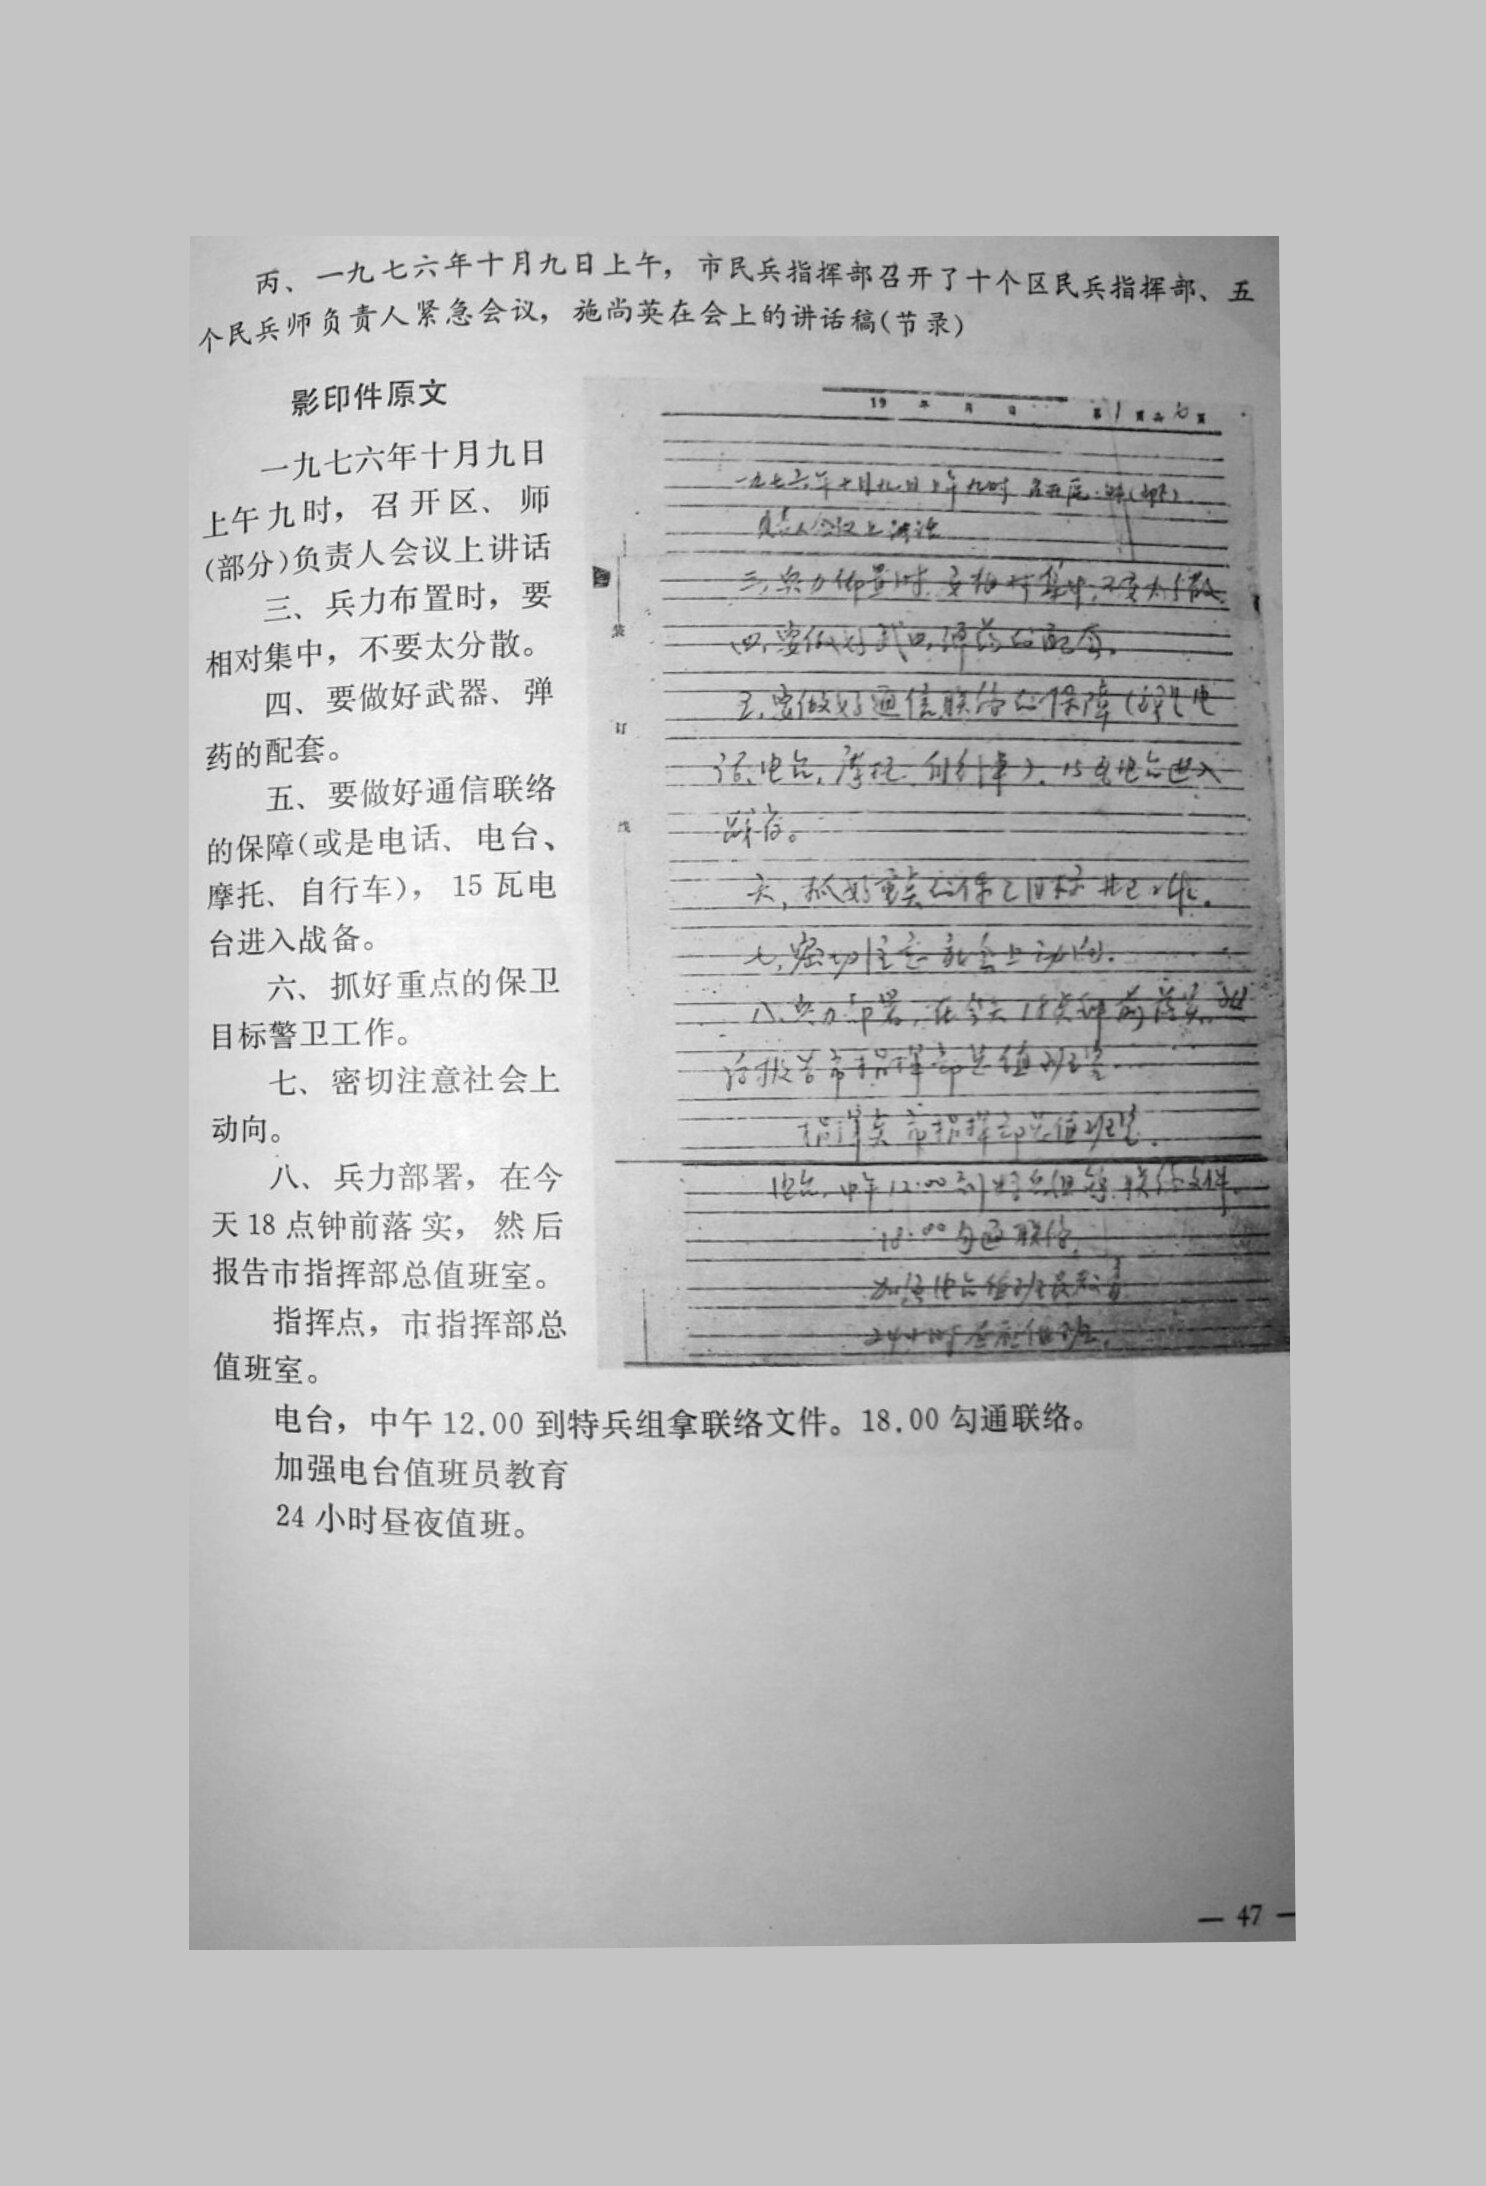 丙、一九七六年十月九日上午，市民兵指挥部召开了十个区民兵指挥部、五
个民兵师负责人紧急会议，施尚英在会上的讲话稿(节录)
影印件原文
一九七六年十月九日
上午九时，召开区、师
(部分)负责人会议上讲话
三、兵力布置时，要
相对集中，不要太分散。
四、要做好武器、弹
药的配套。
五、要做好通信联络
的保障(或是电话、电台、
摩托、自行车)，15瓦电
台进入战备。
六、抓好重点的保卫
目标警卫工作。
七、密切注意社会上
动向。
八、兵力部署，在今
天18点钟前落实，然后
报告市指挥部总值班室。
指挥点，市指挥部总
值班室。
电台，中午12.00到特兵组拿联络文件。18.00勾通联络。
加强电台值班员教育
24小时昼夜值班。
19 年 月 日 第1页共七页
一九七六年十月九日上午九时 召开区、师(部分)
负责人会议上讲话
三、兵力佈置时，要相对集中，不要太分散。
四、要做好武口、弹药的配套。
五、要做好通信联络的保障(或是电
话、电台、摩托、自行车)，15瓦电台进入
战备。
六、抓好重点的保卫目标 警卫工作。
七、密切注意社会上动向。
八、兵力部署，在今天18点钟前落实，然
后报告市指挥部总值班室
指挥点 市指挥部总值班室。
电台，中午12:00到特兵组拿联络文件。
18:00勾通联络。
加强电台值班员教育
24小时昼夜值班。
装
订
线
— 47 —